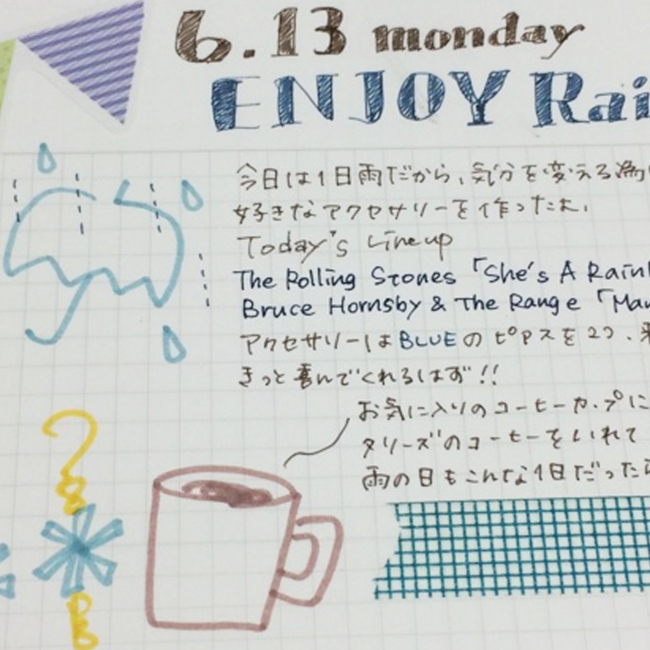 6.13 monday
ENJOY Rai
今日は1日雨だから、気分を変える為
好きなアクセサリーを作ったよ。
Today's Lineup
The Rolling Stones「She's A Rain
Bruce Hornsby & The Range「Man
アクセサリーはBLUEのピアスを2つ、
きっと喜んでくれるはず!!
お気に入りのコーヒーカップに
タリーズのコーヒーをいれて
雨の日もこんな1日だったら